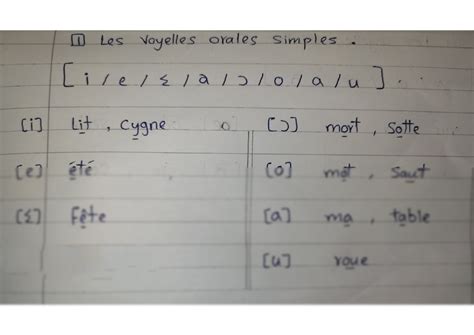 1 Les Voyelles orales simples.
[i / e / ɛ / a / ɔ / o / a / u]
[i] Lit, cygne
[e] été
[ɛ] Fête
[ɔ] mort, Sotte
[o] mot, Saut
[a] ma, table
[u] roue